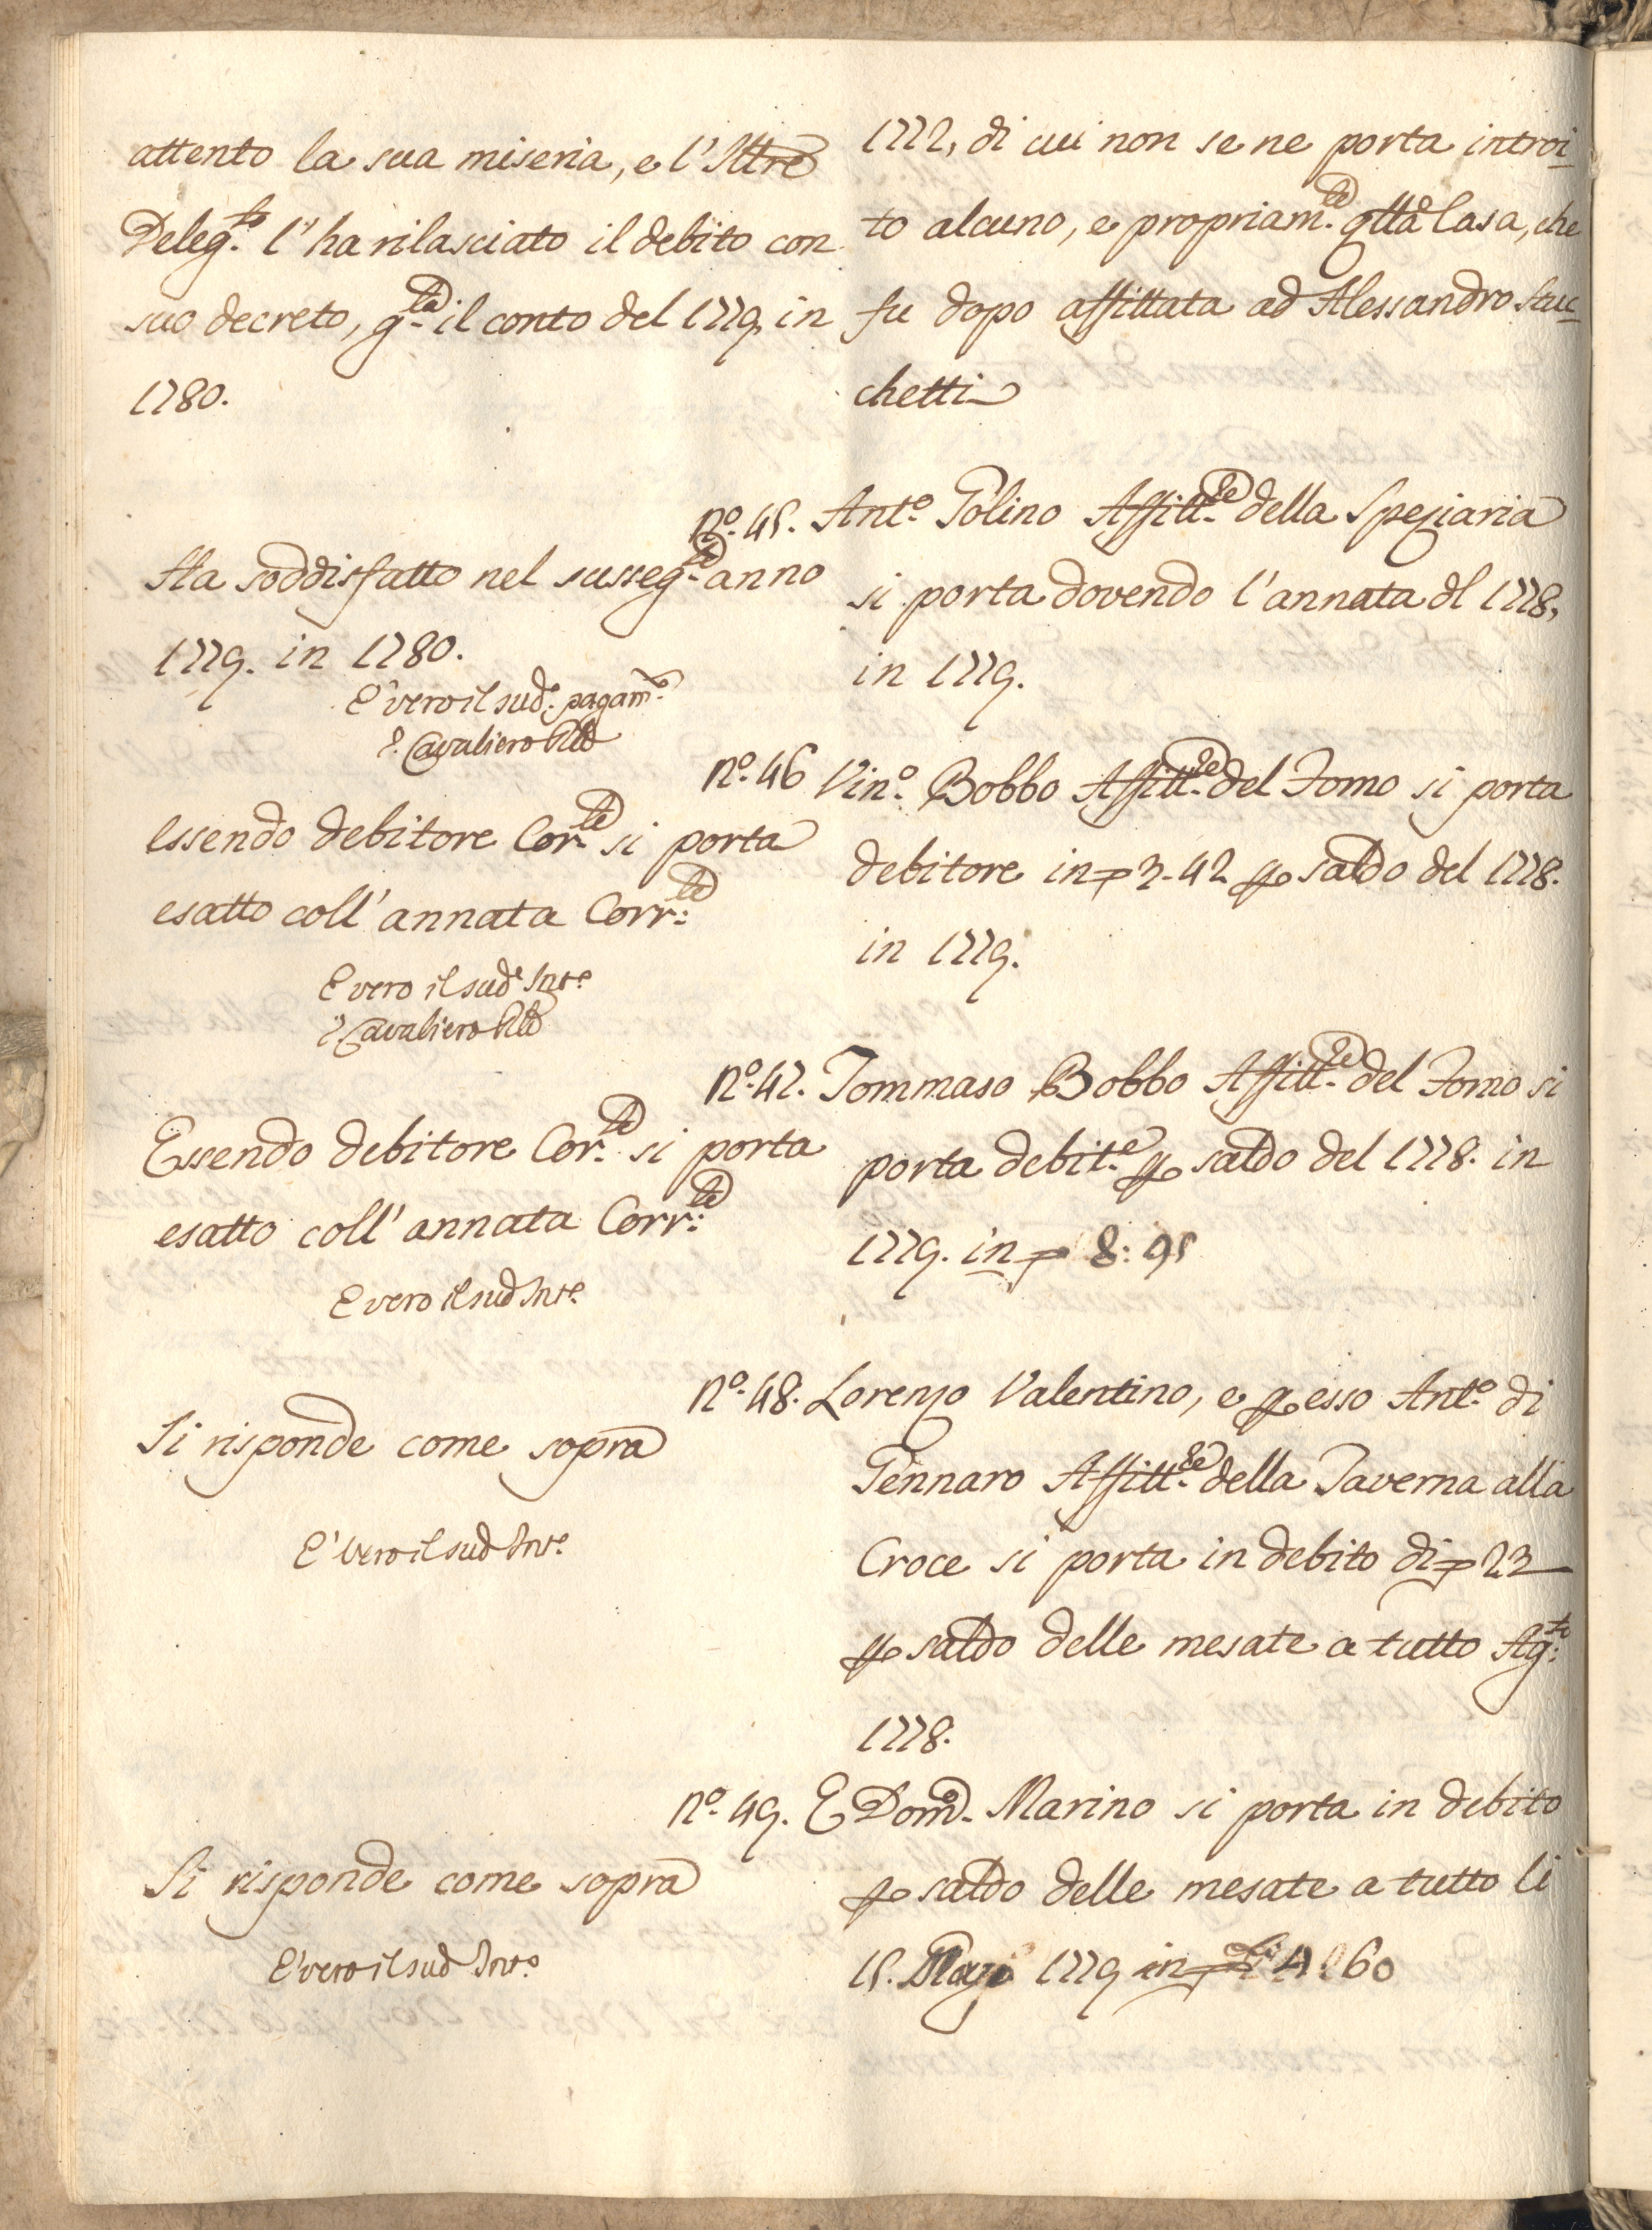 attento la sua miseria, e l'Ill.tre
Deleg.to l'ha rilasciato il debito con
suo decreto, g.ta il conto del 1779 in
1780.
Ha soddisfatto nel susseg.te anno
1779. in 1780.
E' vero il sud.o pagam.to
Cavaliero
Essendo debitore Cor.te si porta
esatto coll' annata Corr.te
E vero il sud.o Int.o
Cavaliero
Essendo debitore Cor.te si porta
esatto coll' annata Corr.te
E vero il sud.o Int.o
Si risponde come sopra
E' vero il sud.o Int.o
Si risponde come sopra
E' vero il sud.o Int.o
1777, di cui non se ne porta introi-
to alcuno, e propriam.te q̃lla Casa, che
fu dopo affittata ad Alessandro Stuc-
chetti
N.o 45. Ant.o Polino Affitt.re della Speziaria
si porta dovendo l'annata dl 1778,
in 1779.
N.o 46 Vin.o Bobbo Affitt.re del Forno si porta
debitore in 3-42 p saldo del 1778.
in 1779.
N.o 47. Tommaso Bobbo Affitt.re del Forno si
porta debit.e p saldo del 1778. in
1779. in 8: 95
N.o 48. Lorenzo Valentino, e p esso Ant.o di
Gennaro Affitt.re della Taverna alla
Croce si porta in debito di 23
p saldo delle mesate a tutto Ag.to
1778.
N.o 49. E Dom.o Marino si porta in debito
p saldo delle mesate a tutto li
15. Mag.o 1779 in 60